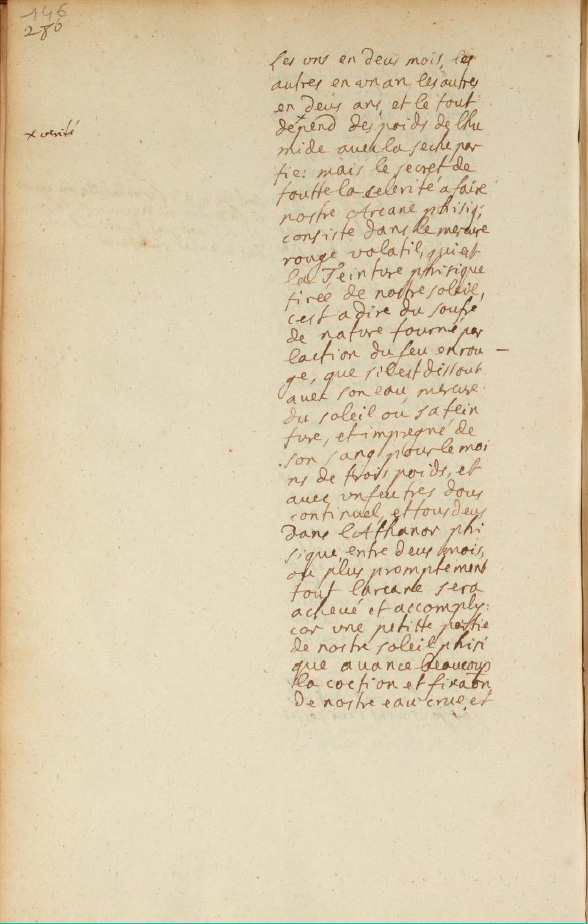 146
280
les uns en deus mois, les
autres en un an les autres
en deus ans et le tout
x verité
depend des poids de lhu
mide auec la seche par
tie: mais le secret de
toutte la celerité a faire
nostre Arcane phisiq;
consiste dans le mercure
rouge volatil, qui est
la Teinture phisique
tirée de nostre soleil,
cest a dire du soufre
de nature tourné par
laction du feu en rou
ge, que sil est dissout
auec son eau, mercure
du soleil ou sa tein
ture, et impregné de
son sang pour le moi
ns de trois poids, et
auec un feu tres dous
continuel, et tous deus
Dans lAthanor phi
sique, entre deus mois,
ou plus promptement
tout larcane sera
acheué et accomply:
car une petitte partie
de nostre soleil phisi
que auance beaucoup
la coction et fixaon
de nostre eau crue, et